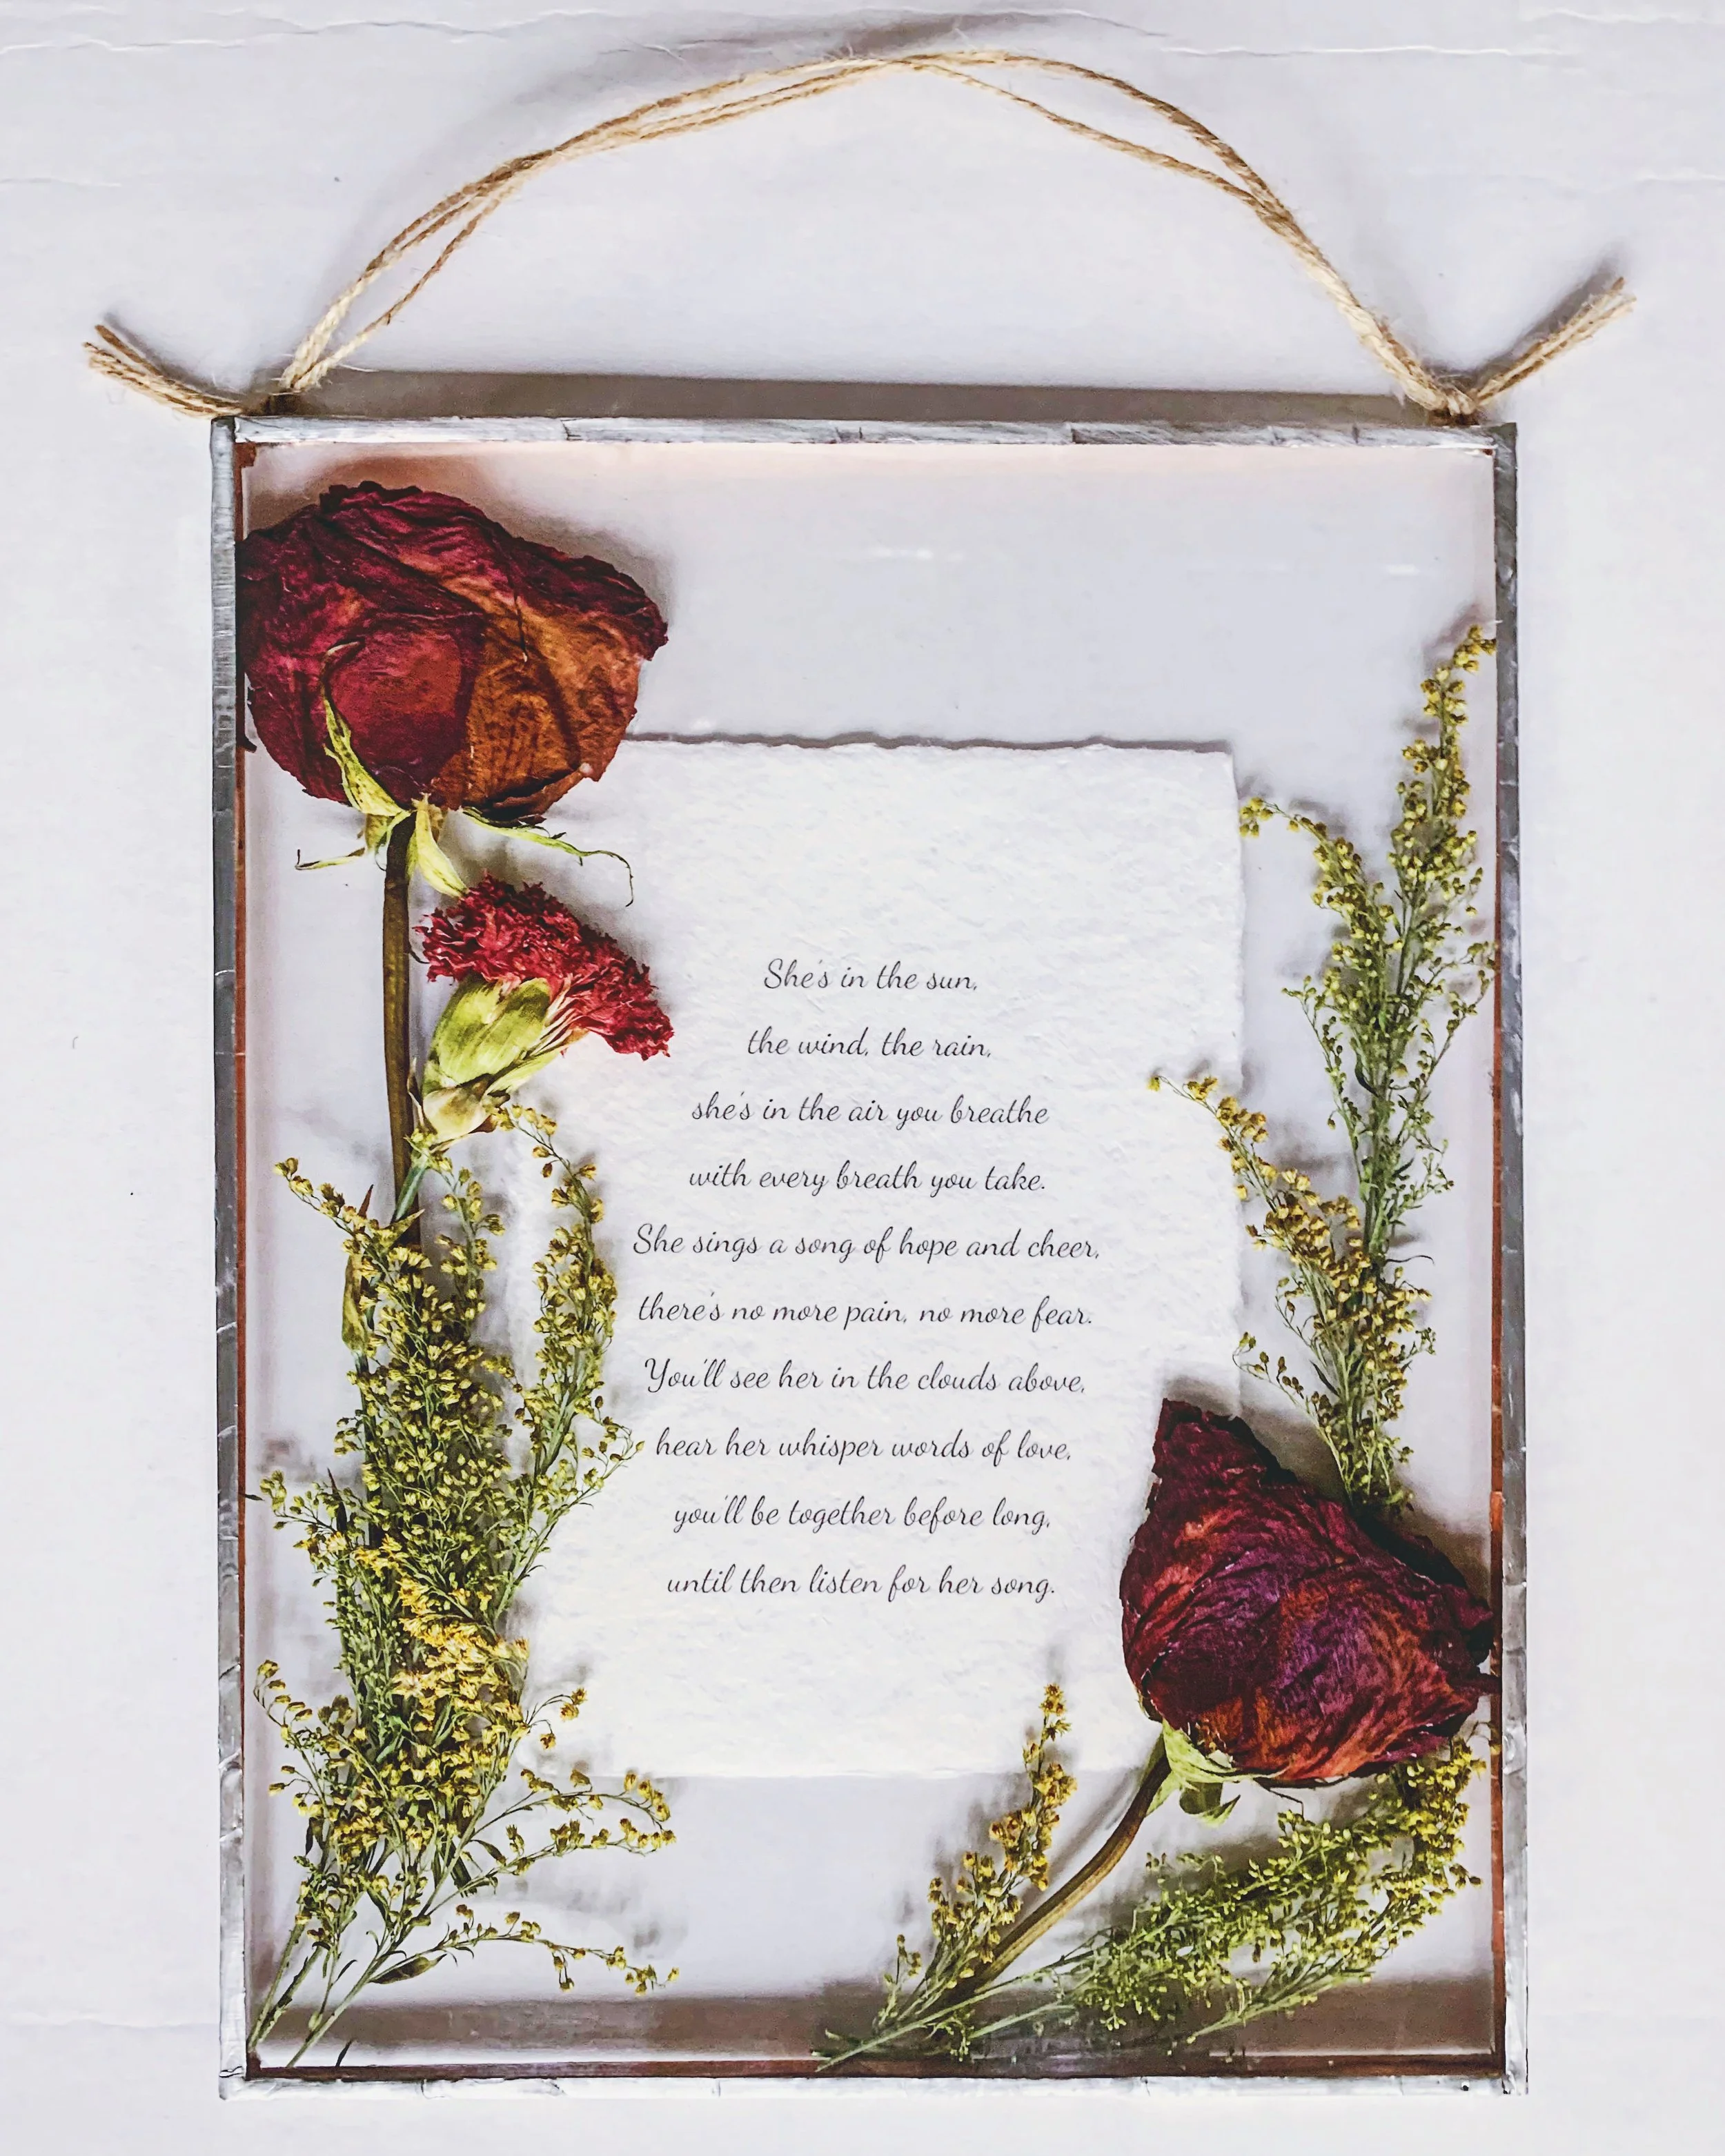 She's in the sun,
the wind, the rain,
she's in the air you breathe
with every breath you take.
She sings a song of hope and cheer,
there's no more pain, no more fear.
You'll see her in the clouds above,
hear her whisper words of love,
you'll be together before long,
until then listen for her song.